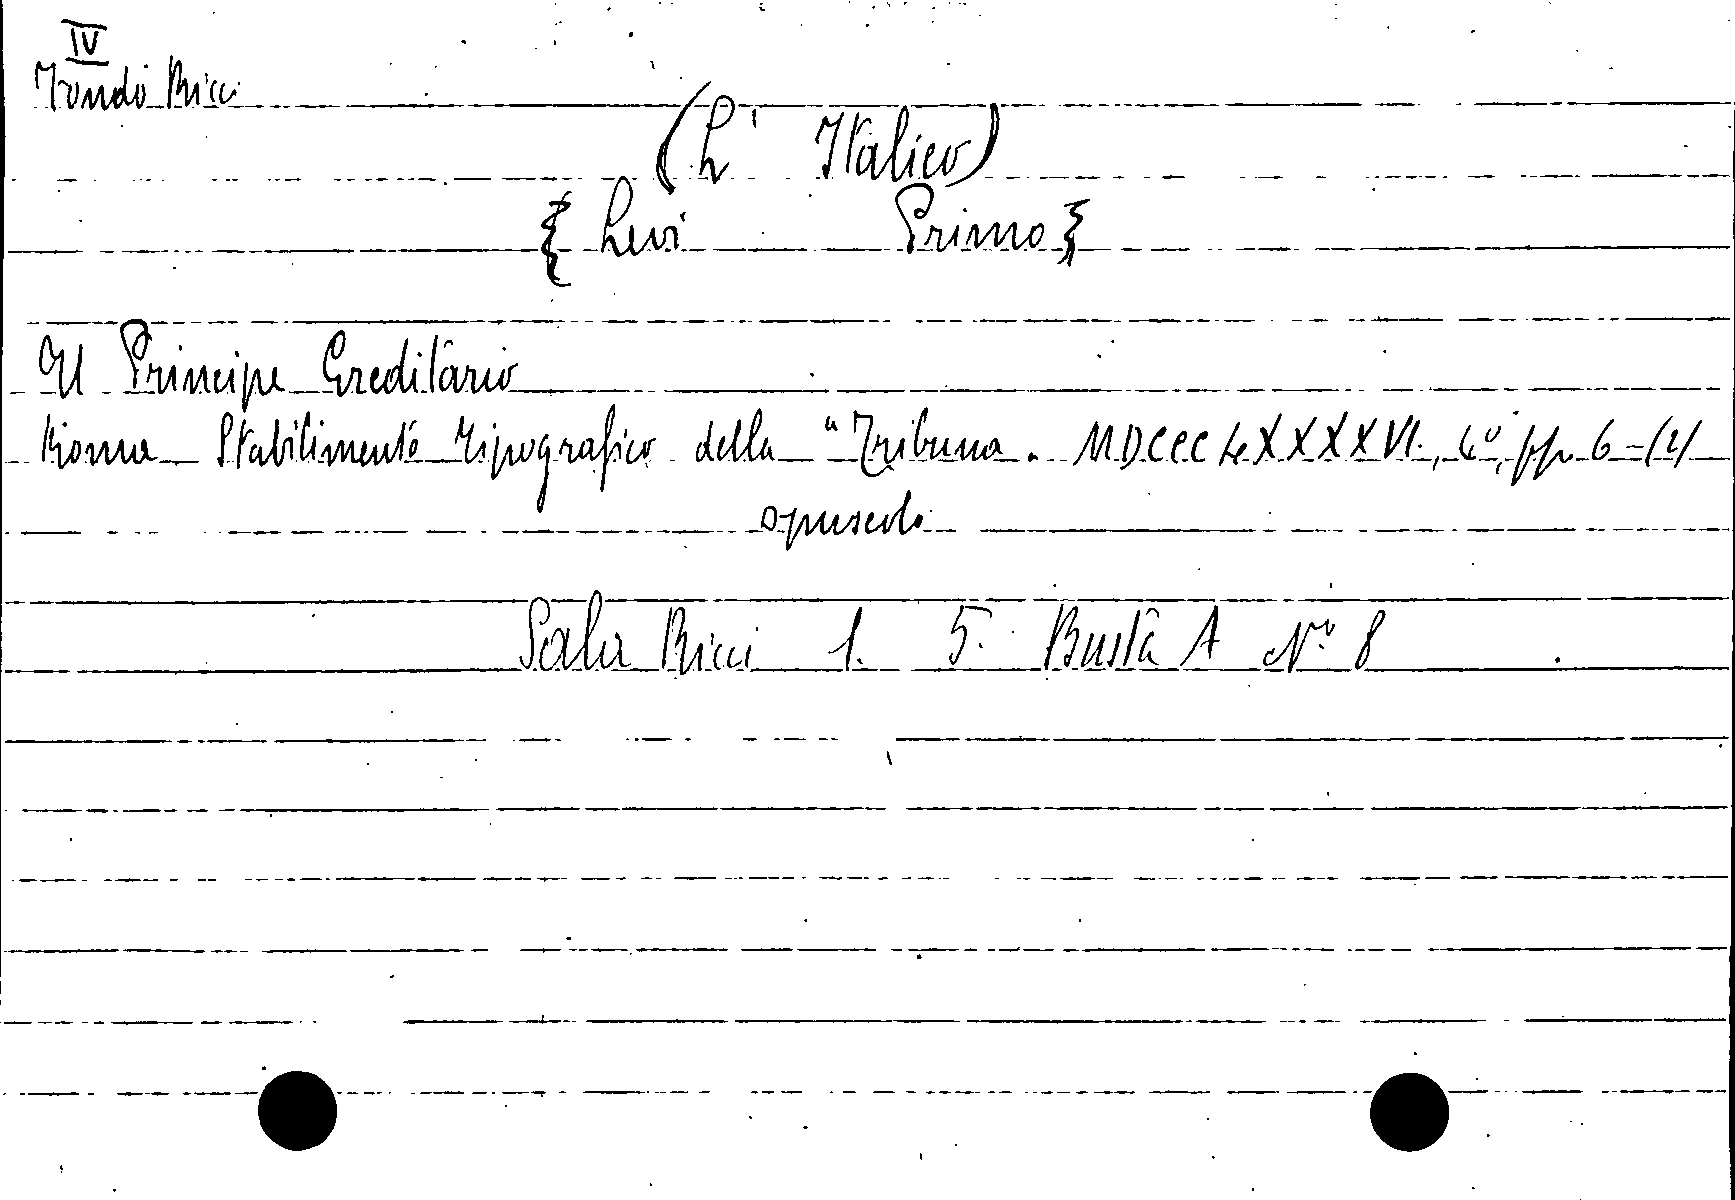 IV
Fondo Ricci
(L' Italico)
{ Levi Primo }
Il Principe Ereditario
Roma Stabilimento Tipografico della "Tribuna. MDCCCLXXXXVI., 4º, pp. 6-(2)
opuscolo
Sala Ricci 1. 5. Busta A Nº 8